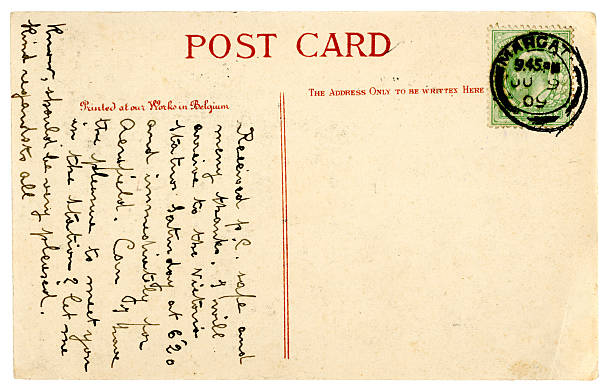 POST CARD
MARGAT
9.45 AM
JU 9
09
THE ADDRESS ONLY TO BE WRITTEN HERE
Printed at our Works in Belgium
Received p.c. safe and
many thanks. I will
arrive to the Victoria
Station Saturday at 6.20
and immediately for
. Can I have
the pleasure to meet you
in the Station & let me
know, should be very pleased.
Kind regards to all